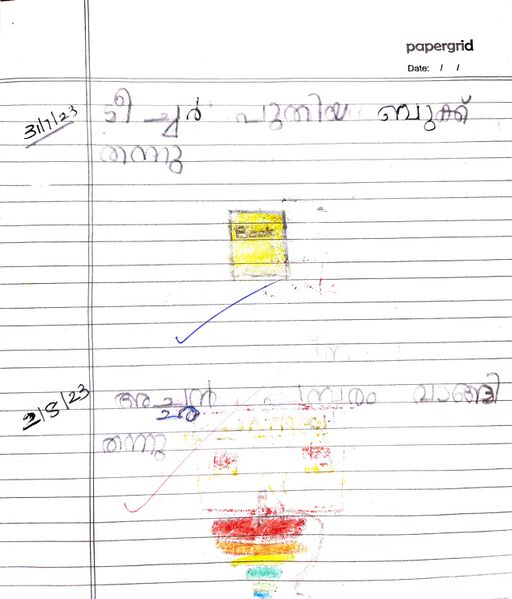 papergrid
Date: / /
31/7/23
ടീച്ചർ പുതിയ ബുക്ക്
തന്നു
Book
2/8/23
അച്ചൻ പമ്പരം വാങ്ങി
ച്ഛ
തന്നു